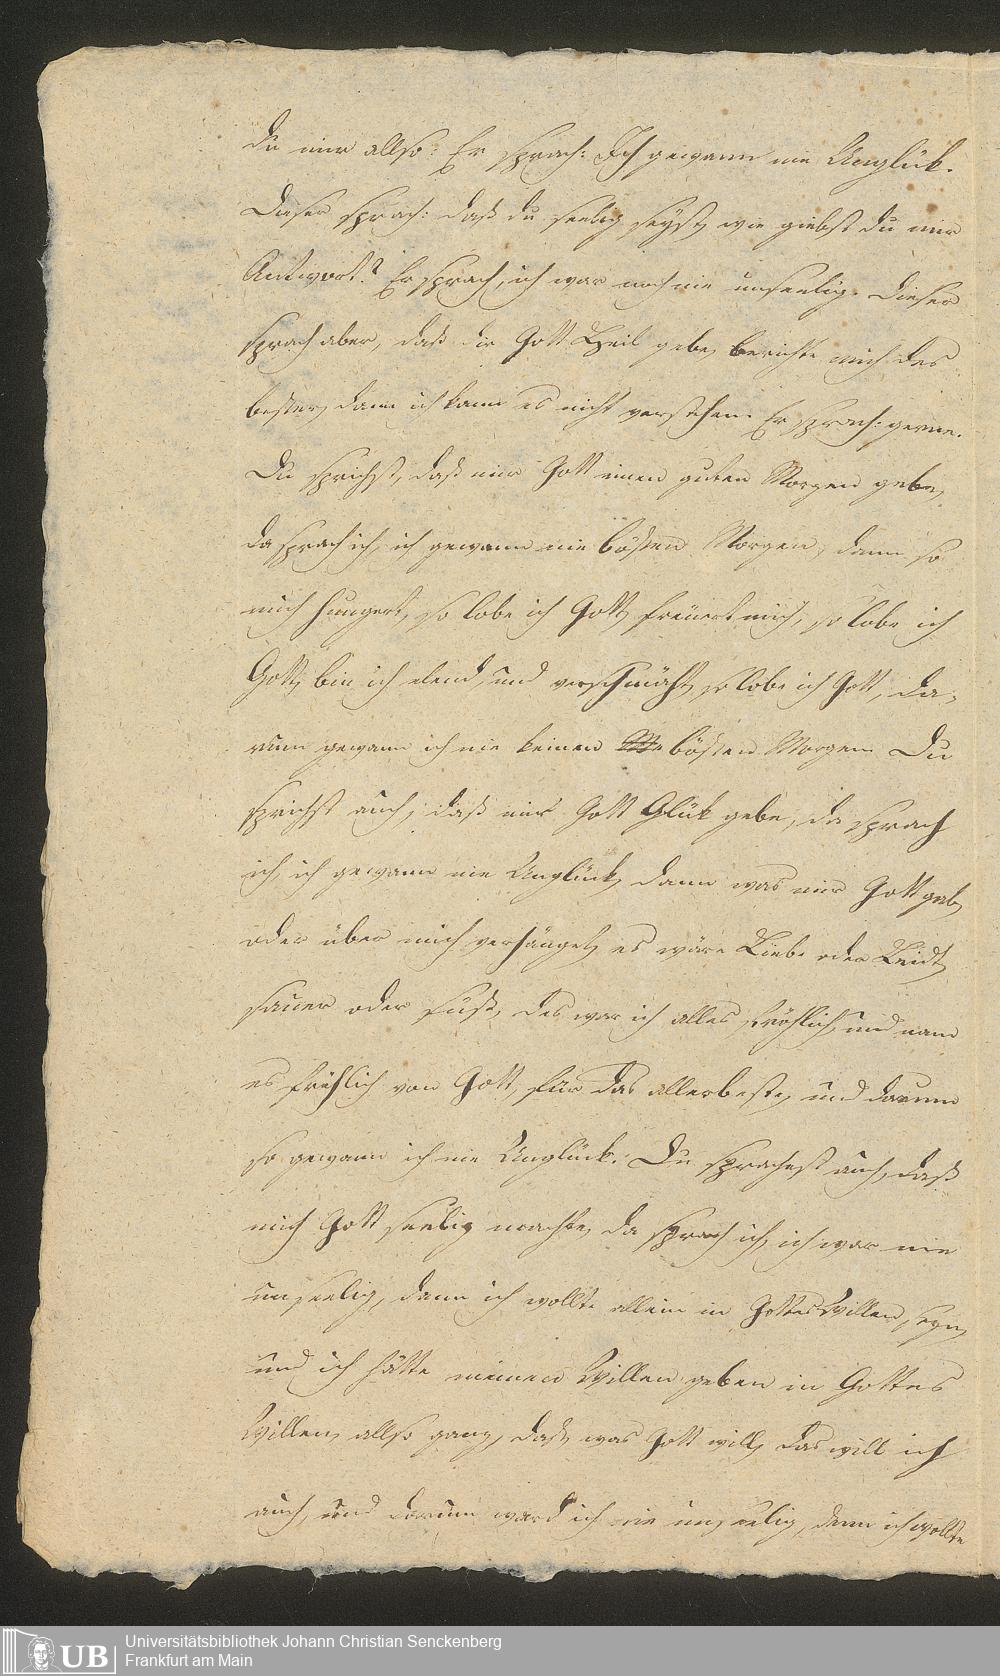 du mir allso: Er sprach: Ich gewann nie Unglük.
Dieser sprach: daß du seelig seyst, wie giebst du mir
Antwort? Er sprach, ich war noch nie unseelig. Dieser
sprach aber, daß dir Gott Heil gebe, berichte mich des
besser, dann ich kann es nicht verstehen. Er sprach: gerne.
Du sprichst, daß mir Gott einen guten Morgen gebe,
da sprach ich, ich gewann nie bößen Morgen, denn so
mich hungert, so lobe ich Gott, freuert mich, so lobe ich
Gott, bin ich elend, und verschmäht, so lobe ich Gott, da-
rum gewann ich nie keinen bößen Morgen. Du
sprichst auch, daß mir Gott Glük gebe, da sprach
ich, ich gewann nie Unglück, dann was mir Gott gab,
oder über mich verhänget, es wäre Liebe oder Leidt,
sauer oder süß, des war ich alles fröhlich, und nam
es frölich von Gott, für das allerbeste, und darum
so gewann ich nie Unglück. Du sprachest auch, daß
mich Gott seelig machte, da sprach ich, ich war nie
unseelig, denn ich wollte allein in Gottes Willen seyn,
und ich hätte meinen Willen geben in Gottes
Willen, allso ganz, daß, was Gott will, das will ich
auch, und darum ward ich nie unseelig, denn ich wollte
UB
Universitätsbibliothek Johann Christian Senckenberg
Frankfurt am Main